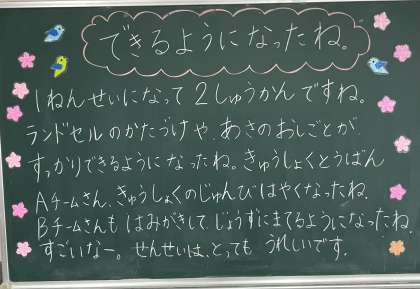 できるようになったね。
1ねんせいになって2しゅうかんですね。
ランドセルのかたづけや、あさのおしごとが
すっかりできるようになったね。きゅうしょくとうばん
Aチームさん、きゅうしょくのじゅんびはやくなったね。
Bチームさんもはみがきして、じょうずにまてるようになったね。
すごいなー。せんせいは、とっても うれしいです。